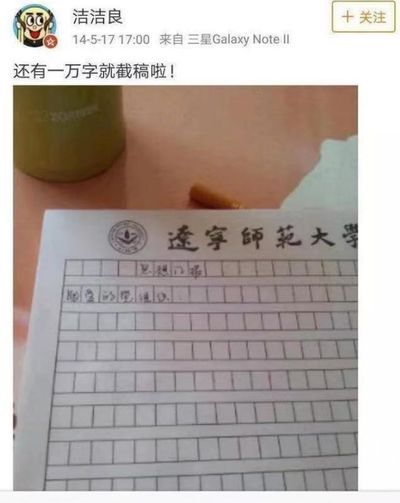 洁洁良
14-5-17 17:00 来自 三星Galaxy Note II
+ 关注
还有一万字就截稿啦！
ZORMNEI
遼寧師範大學
思想汇报
敬爱的党组织